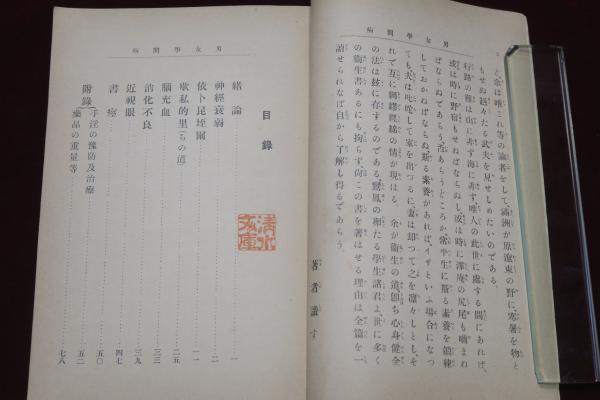 男女學問病
二
と、余は唯これ等の論者をして、滿洲が原遼東の野に、寒暑を物と
もせぬ赳々たる武夫を見せしめたいのである。
行路の難は山に非ず海に非ず、唯人の此世に處する間にあれば、
或は時に野宿もせねばならぬし、或は時に澤庵の尻尾も嚙まね
ばならぬであらう、否あらうどころか、常平生に斯る素養を鍛練
しておかねばならぬ、斯る素養があれば、イザといふ場合になつ
ても、夫は叱咤して家を出づるに、妻は却つて之を凛々しとし、そ
れで互に綢繆纏綿の情が現はる、余が衞生の道、卽ち心身健全
の法は玆に存するのである、鸞鳳の卵たる學生諸君よ、世に多く
の衞生書あるにも拘らず、尙この書を著はせる理由は、全篇を一
讀せられなば自から了解し得るであらう。
著者識す
男女學問病
目錄
緖論 一
神經衰弱 二
依卜昆垤爾 一一
歇私的里(ちの道) 二五
腦充血 三三
消化不良 三九
近視眼 四七
書痙 五〇
附錄 手淫の豫防及治療 五二
藥品の重量等 七八
淸水文庫